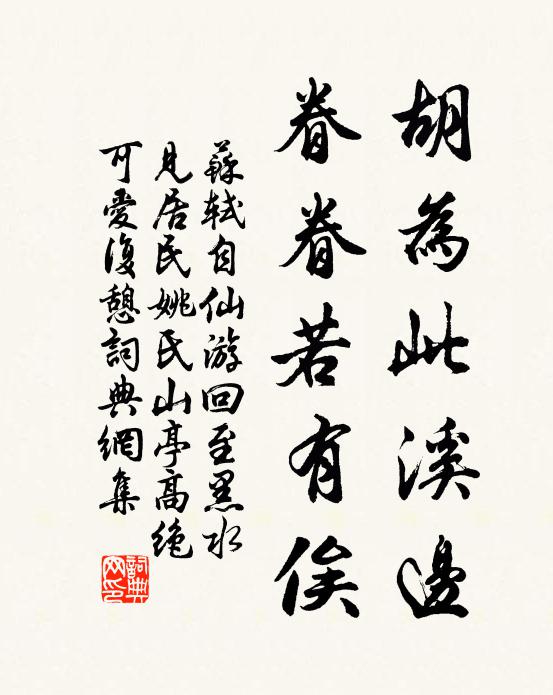 胡為此溪邊
眷眷若有俟
蘇軾自仙游回至黑水
見居民姚氏山亭高絶
可愛復憩詞典網集
詞典网印